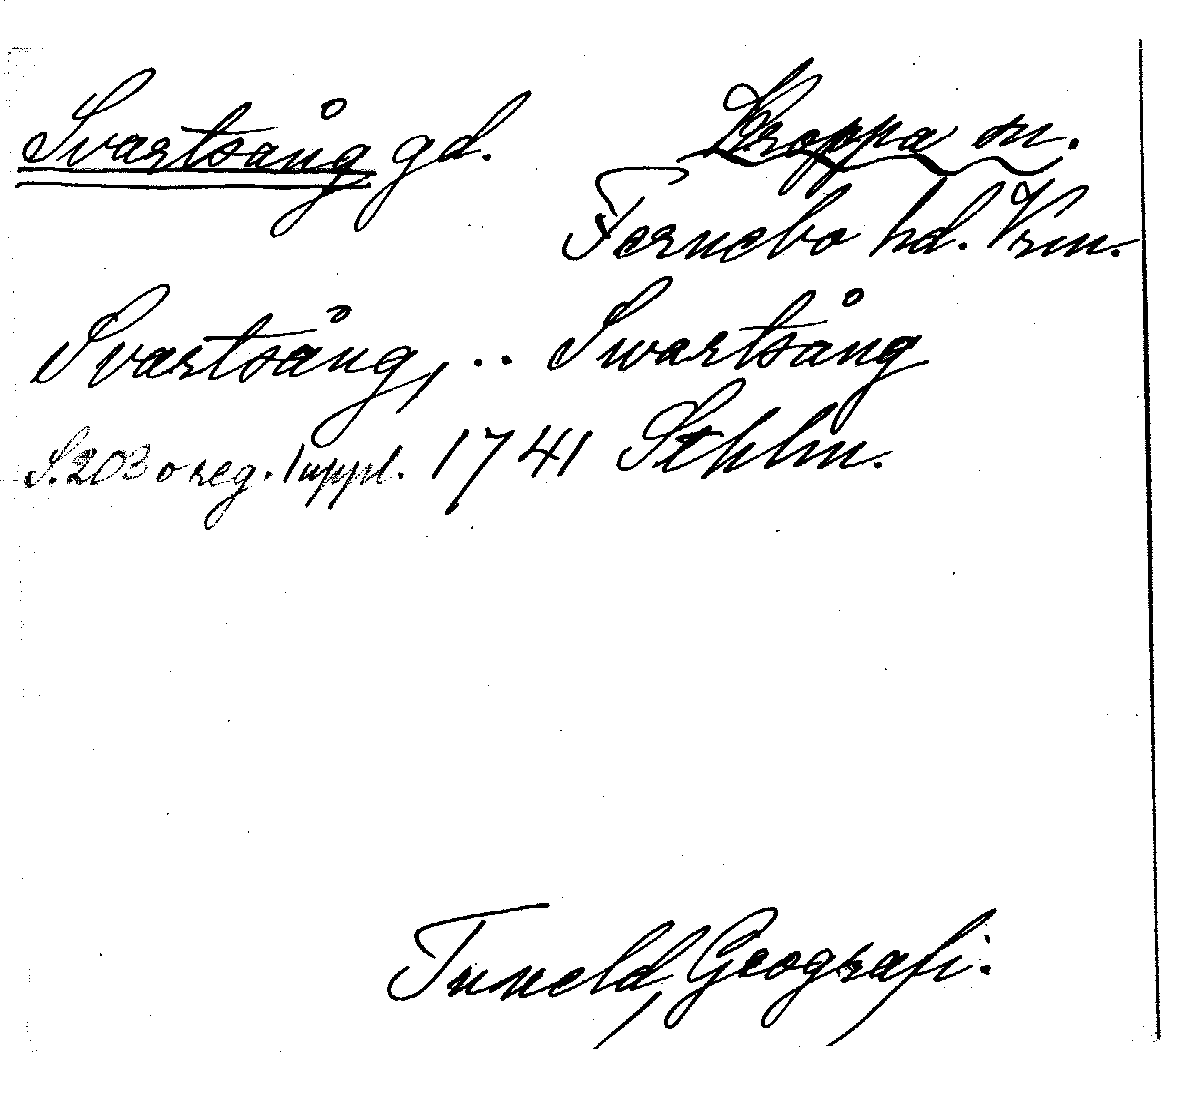 Svartsång gd. Kroppa sn.
Fernebo hd. Vrm.
Svartsång, .. Swartsång
S. 203 o reg. 1 uppl. 1741 Sthlm.
Tuneld, Geografi.